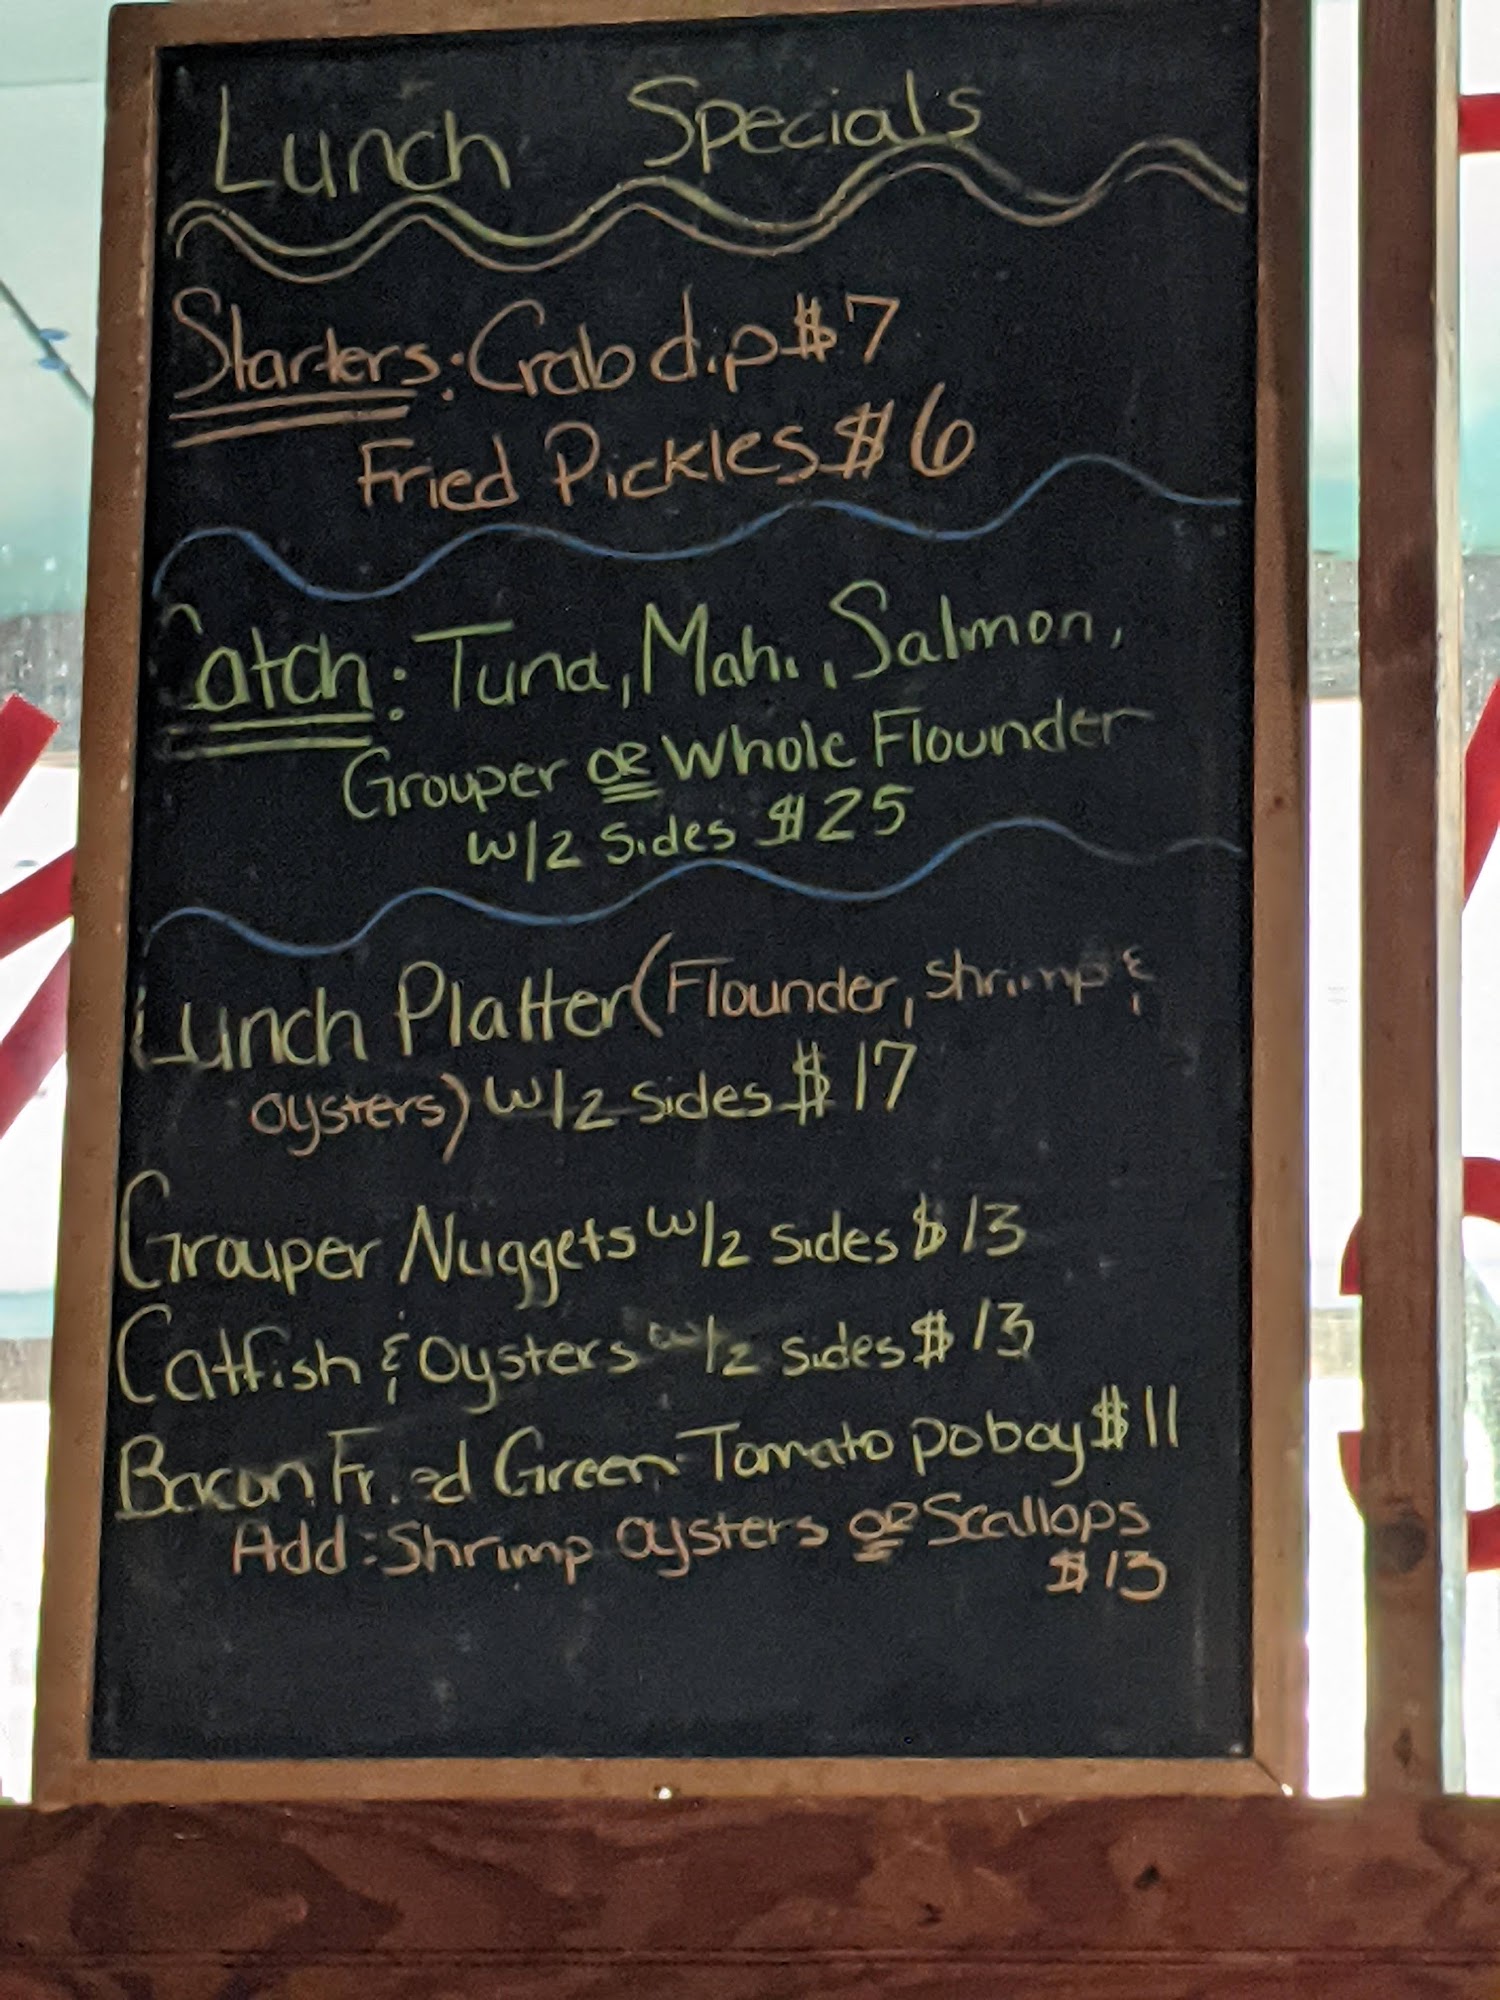 Lunch Specials
Starters: Crab dip $7
Fried Pickles $6
Catch: Tuna, Mahi, Salmon,
Grouper OR Whole Flounder
w/2 Sides $25
Lunch Platter (Flounder, shrimp &
oysters) w/2 sides $17
Grouper Nuggets w/2 sides $13
Catfish & Oysters w/2 sides $13
Bacon Fried Green Tomato poboy $11
Add: Shrimp oysters OR Scallops
$13